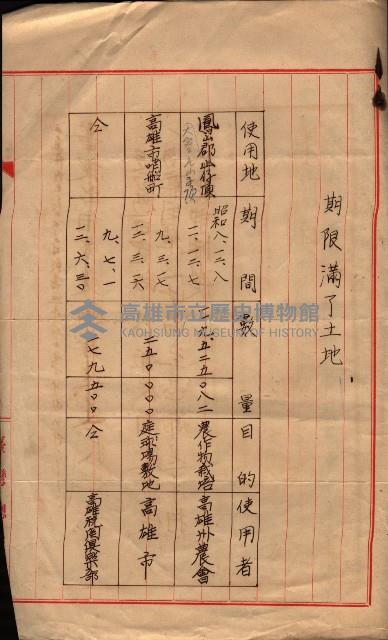 期限滿了土地
使用地 期間 數量 目的 使用者
鳳山郡山仔頂 昭和八、一二、八 一一、一二、七 一九五二五〇八二 農作物栽培 高雄州農會
高雄市哨船町 九、三、一七 一二、三、一六 二五〇〇〇〇 庭球場敷地 高雄市
仝 九、七、一 一二、六、三〇 一七九五〇〇 仝
高雄市立歷史博物館
KAOHSIUNG MUSEUM OF HISTORY